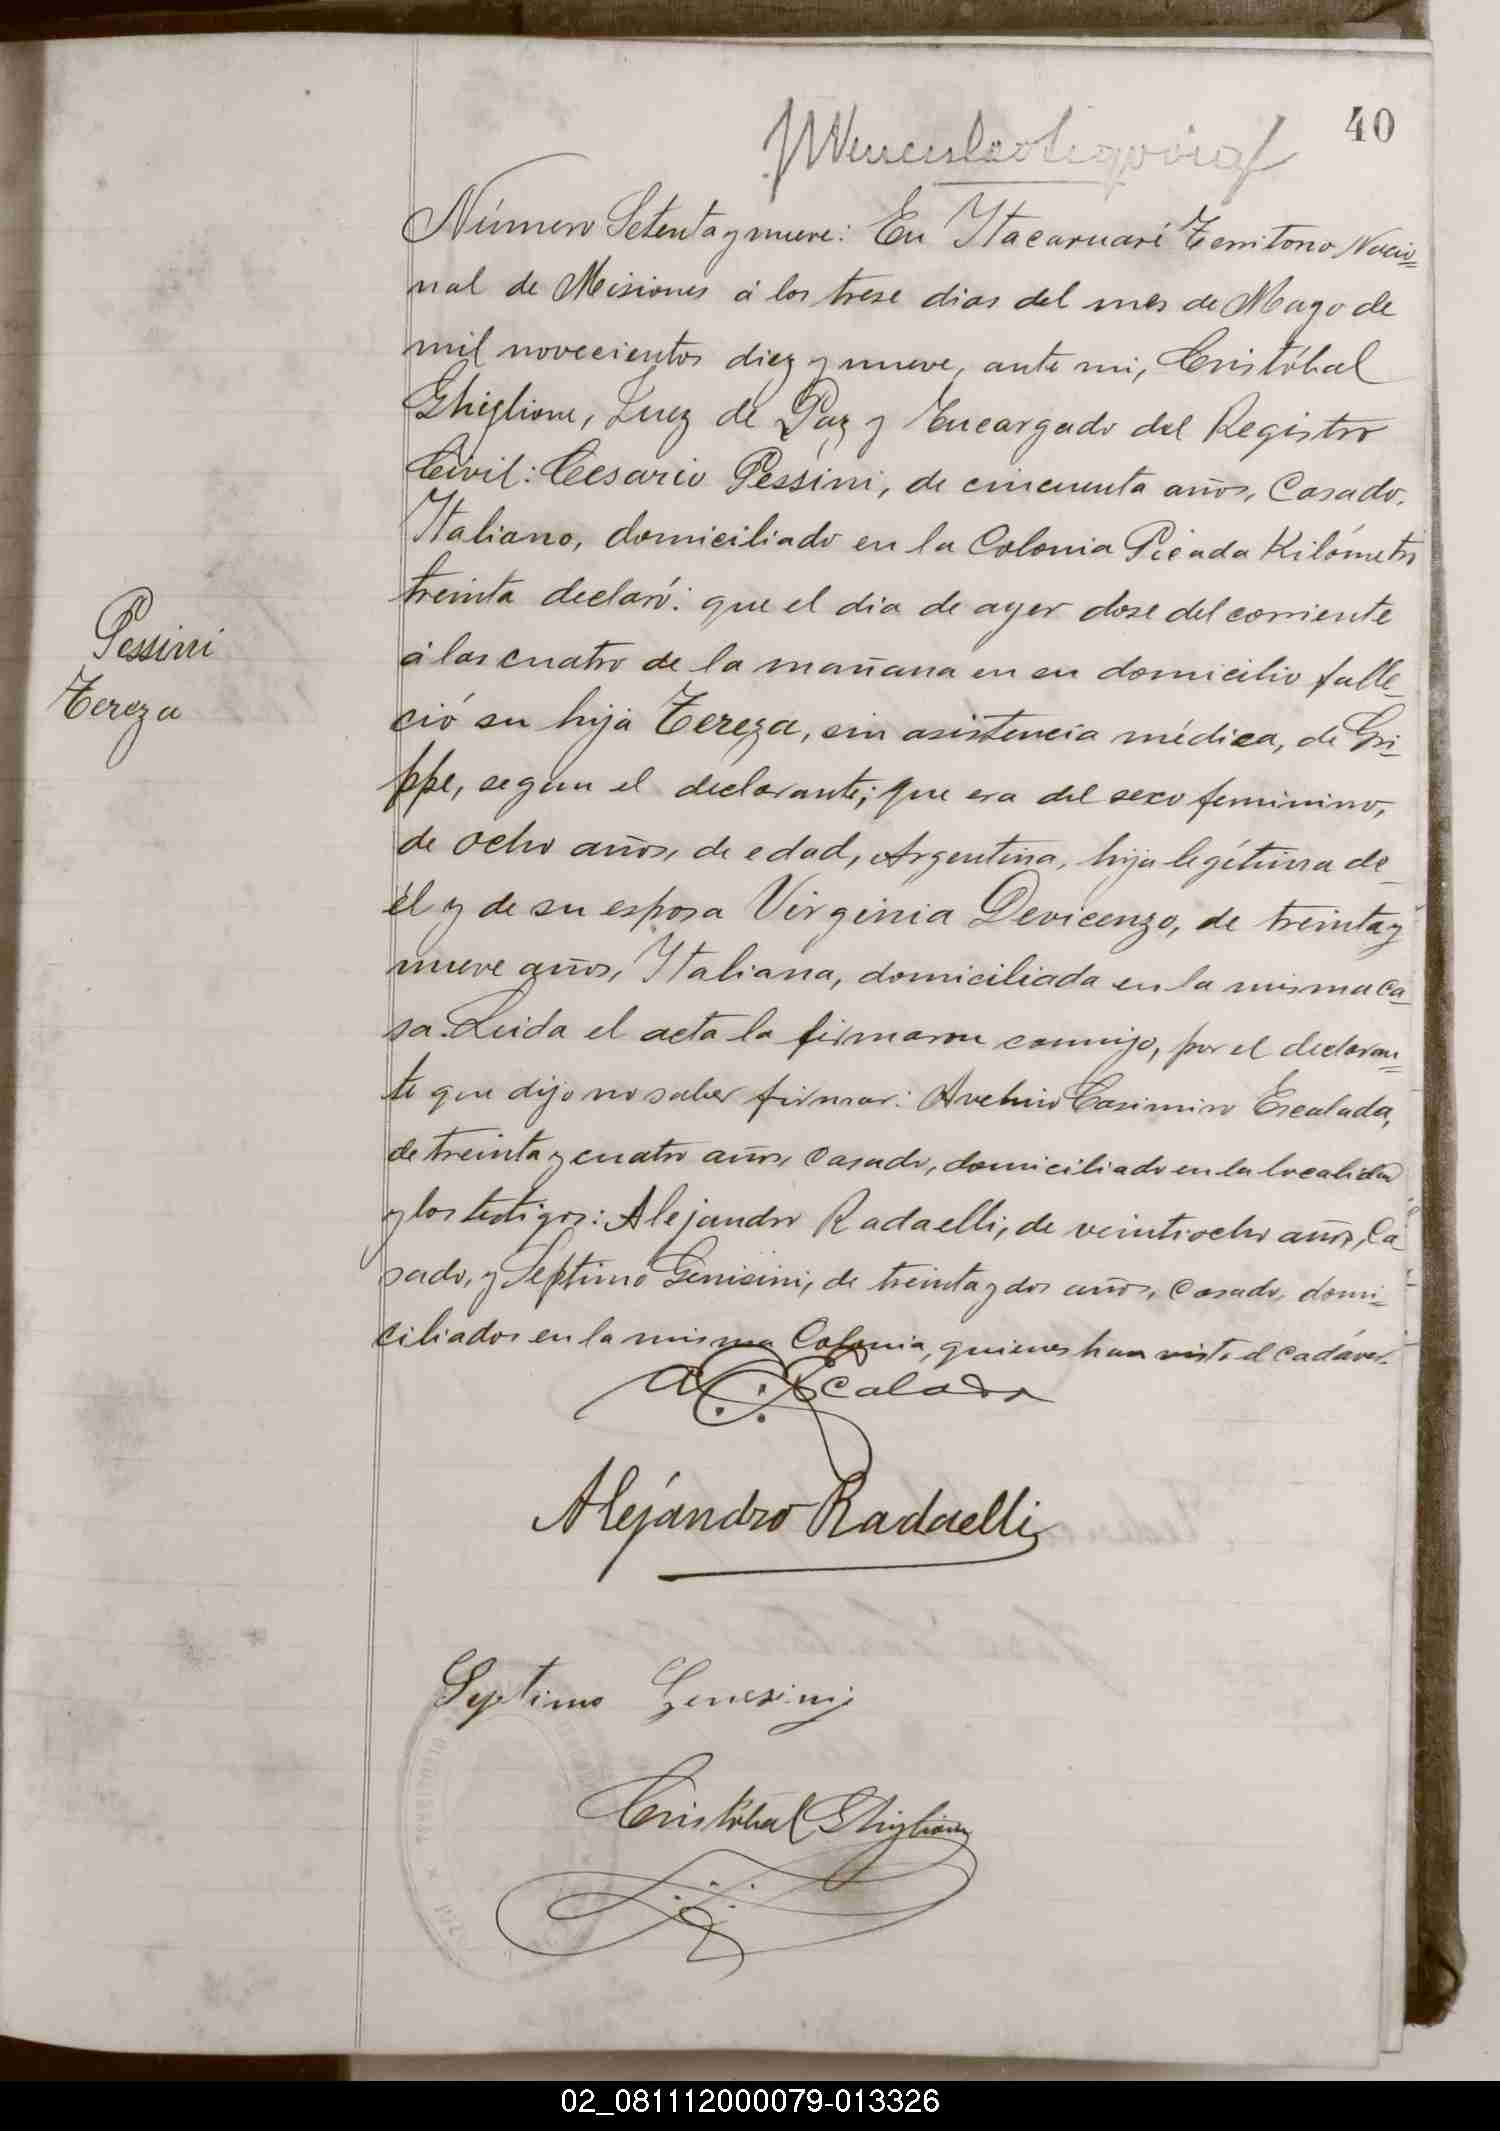 40
Número Setenta y nueve: En Itacaruaré Territorio Nacio=
nal de Misiones á los trese dias del mes de Mayo de
mil novecientos diez y nueve, ante mi, Cristóbal
Ghiglione, Juez de Paz y Encargado del Registro
Civil: Cesario Pessini, de cincuenta años, Casado,
Italiano, domiciliado en la Colonia Picada Kilómetro
treinta declaró: que el dia de ayer dose del corriente
á las cuatro de la mañana en su domicilio falle_
ció su hija Tereza, sin asistencia médica, de Gri_
ppe, segun el declarante; que era del sexo feminino,
de ocho años, de edad, Argentina, hija legítima de_
él y de su esposa Virginia Devicenzo, de treinta y
nueve años, Italiana, domiciliada en la misma ca_
sa. Leida el acta la firmaron conmigo, por el declaran=
te que dijo no saber firmar: Avelino Casimiro Escalada,
de treinta y cuatro años, casado, domiciliado en la localidad
y los testigos: Alejandro Radaelli, de veintiocho años, Ca
sado, y Séptimo Genisini, de treinta y dos años, casado, domi=
ciliados en la misma Colonia, quienes han visto el cadáver.
Pessini
Tereza
A Escalada
Alejándro Radaelli
Septimo Genesini
Cristóbal Ghiglione
TERRITORIO
02_081112000079-013326